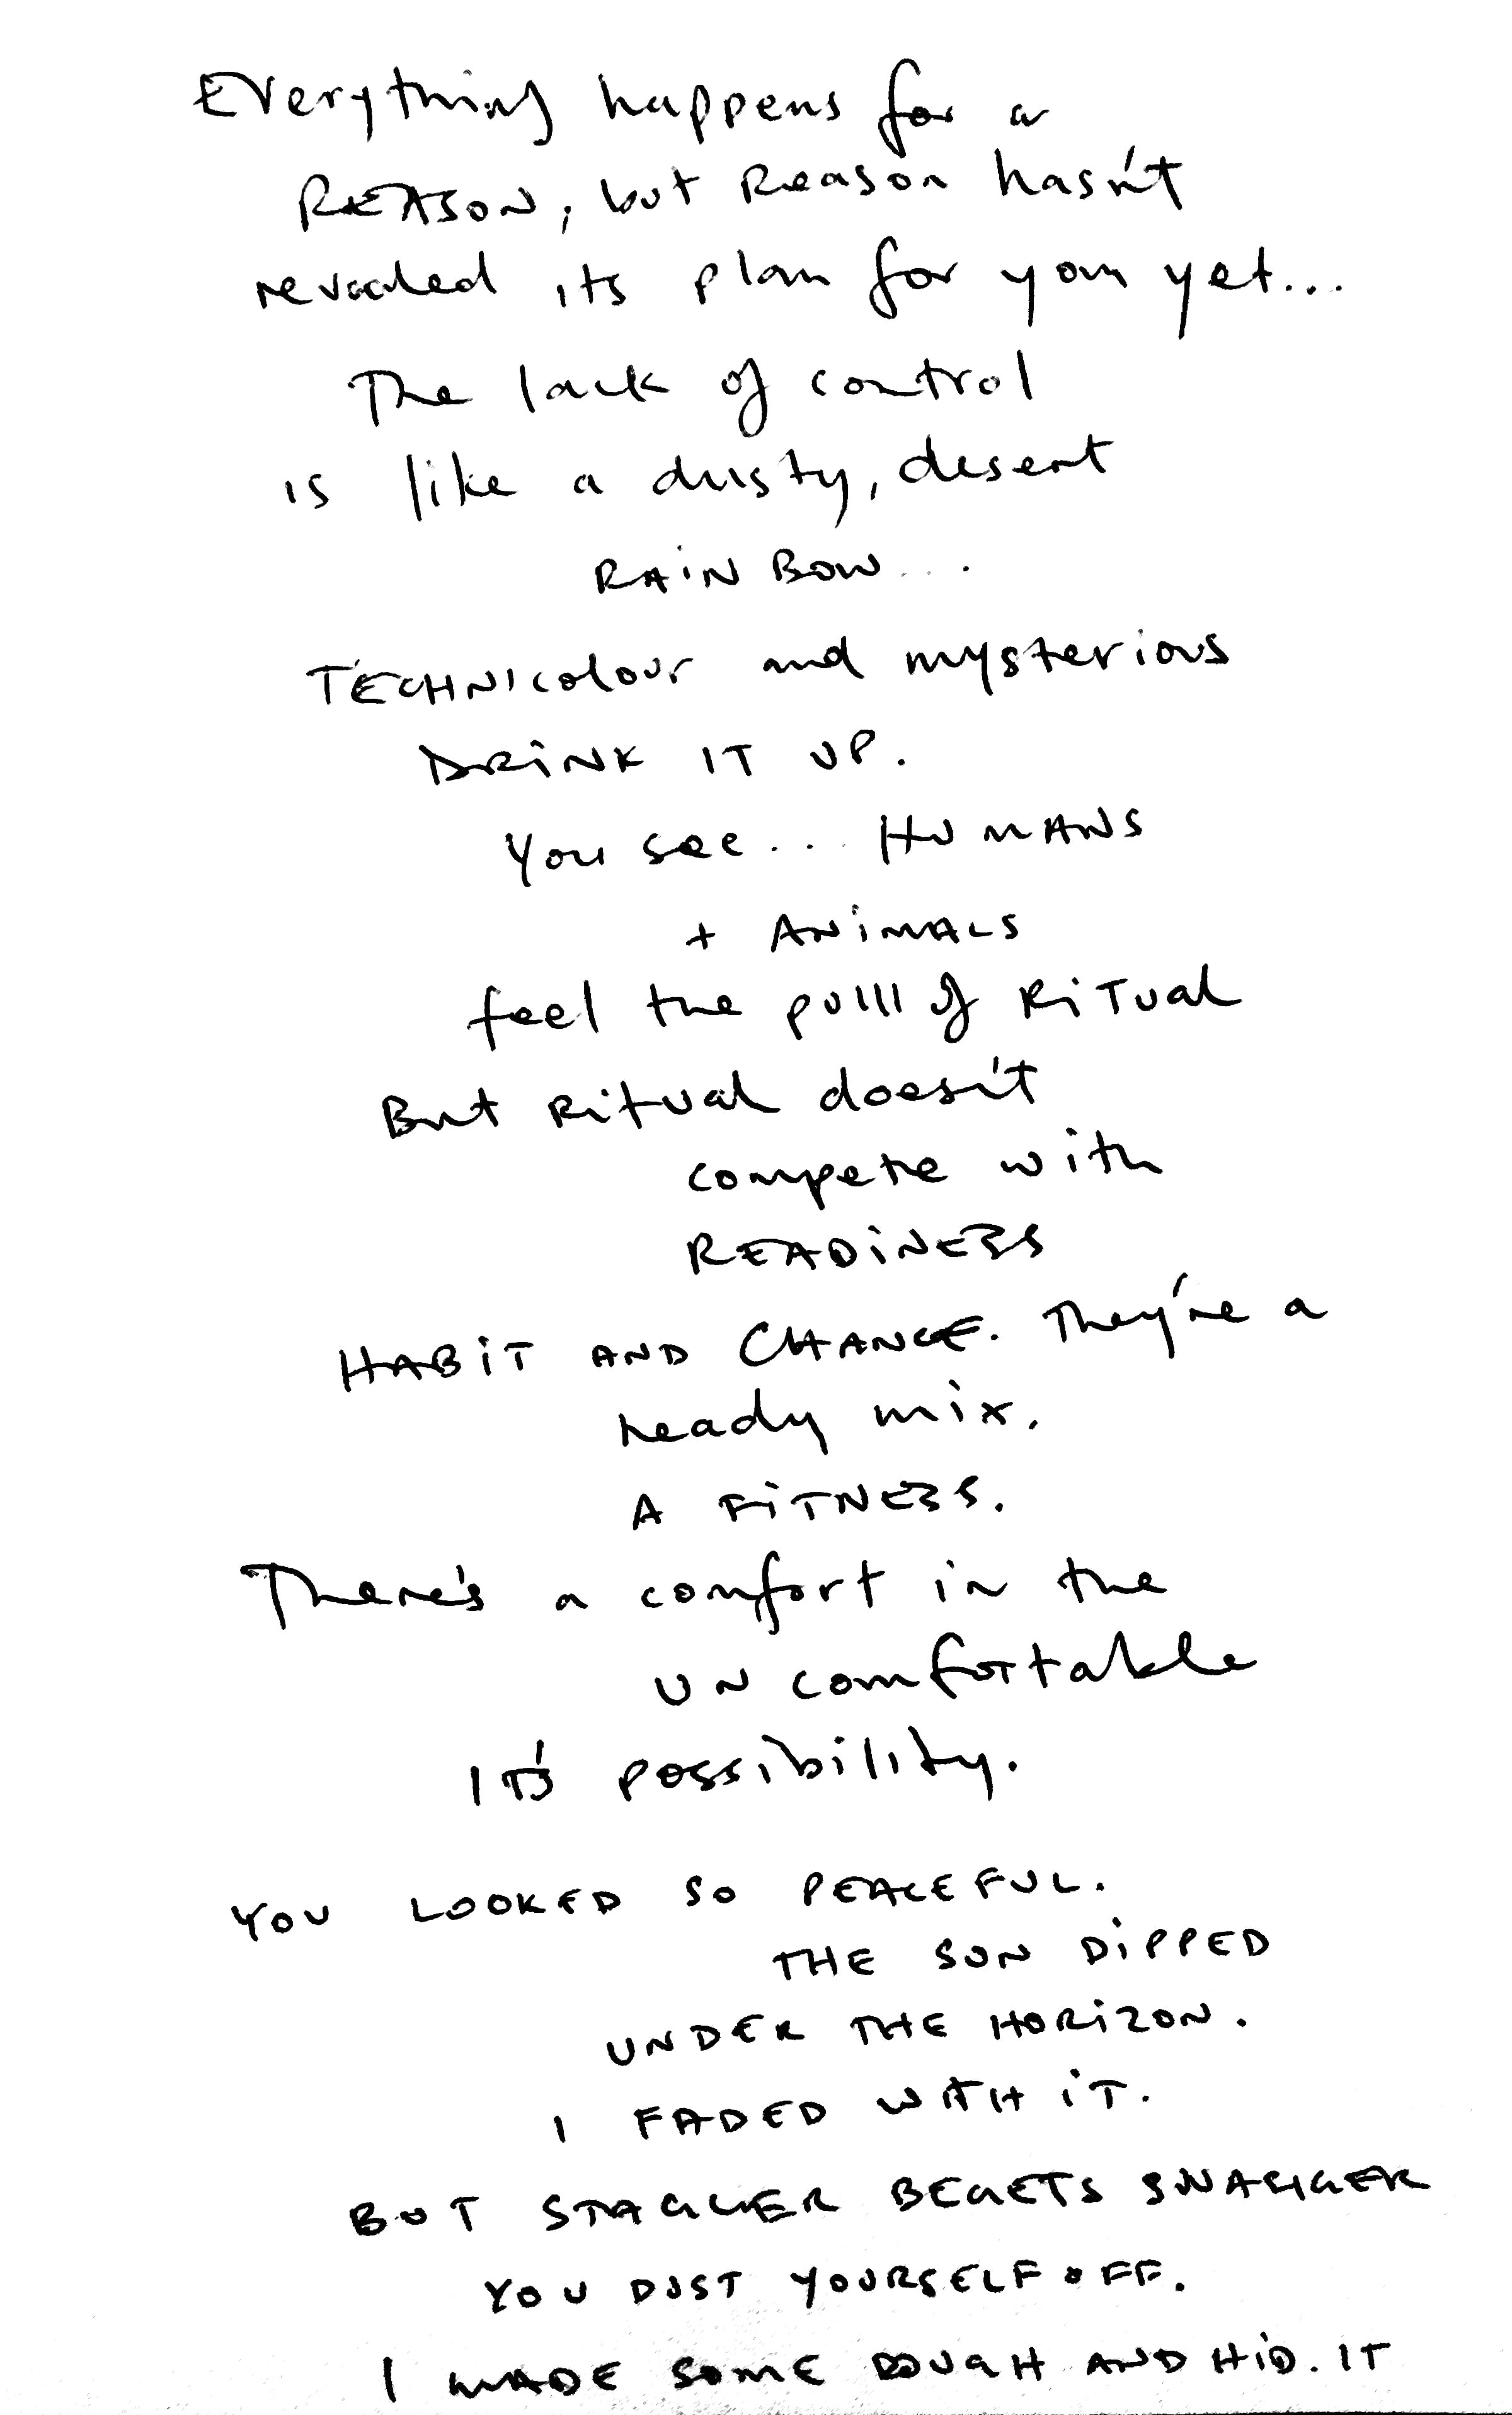 Everything happens for a
REASON, but Reason hasn't
revealed its plan for you yet...
The lack of control
is like a dusty, desert
RAINBOW...
TECHNIcolour and mysterious
DRINK IT UP.
You see... HUMANS
+ ANIMALS
feel the pulll of RiTual
But Ritual doesn't
compete with
READINESS
HABIT AND CHANGE. They're a
heady mix.
A FITNESS.
There's a comfort in the
UNcomfortable
IT'S possibility.
YOU LOOKED SO PEACEFUL.
THE SUN DIPPED
UNDER THE HORIZON.
I FADED WITH IT.
BUT STAGGER BEGETS SWAGGER
YOU DUST YOURSELF OFF.
I MADE SOME DOUGH AND HID. IT